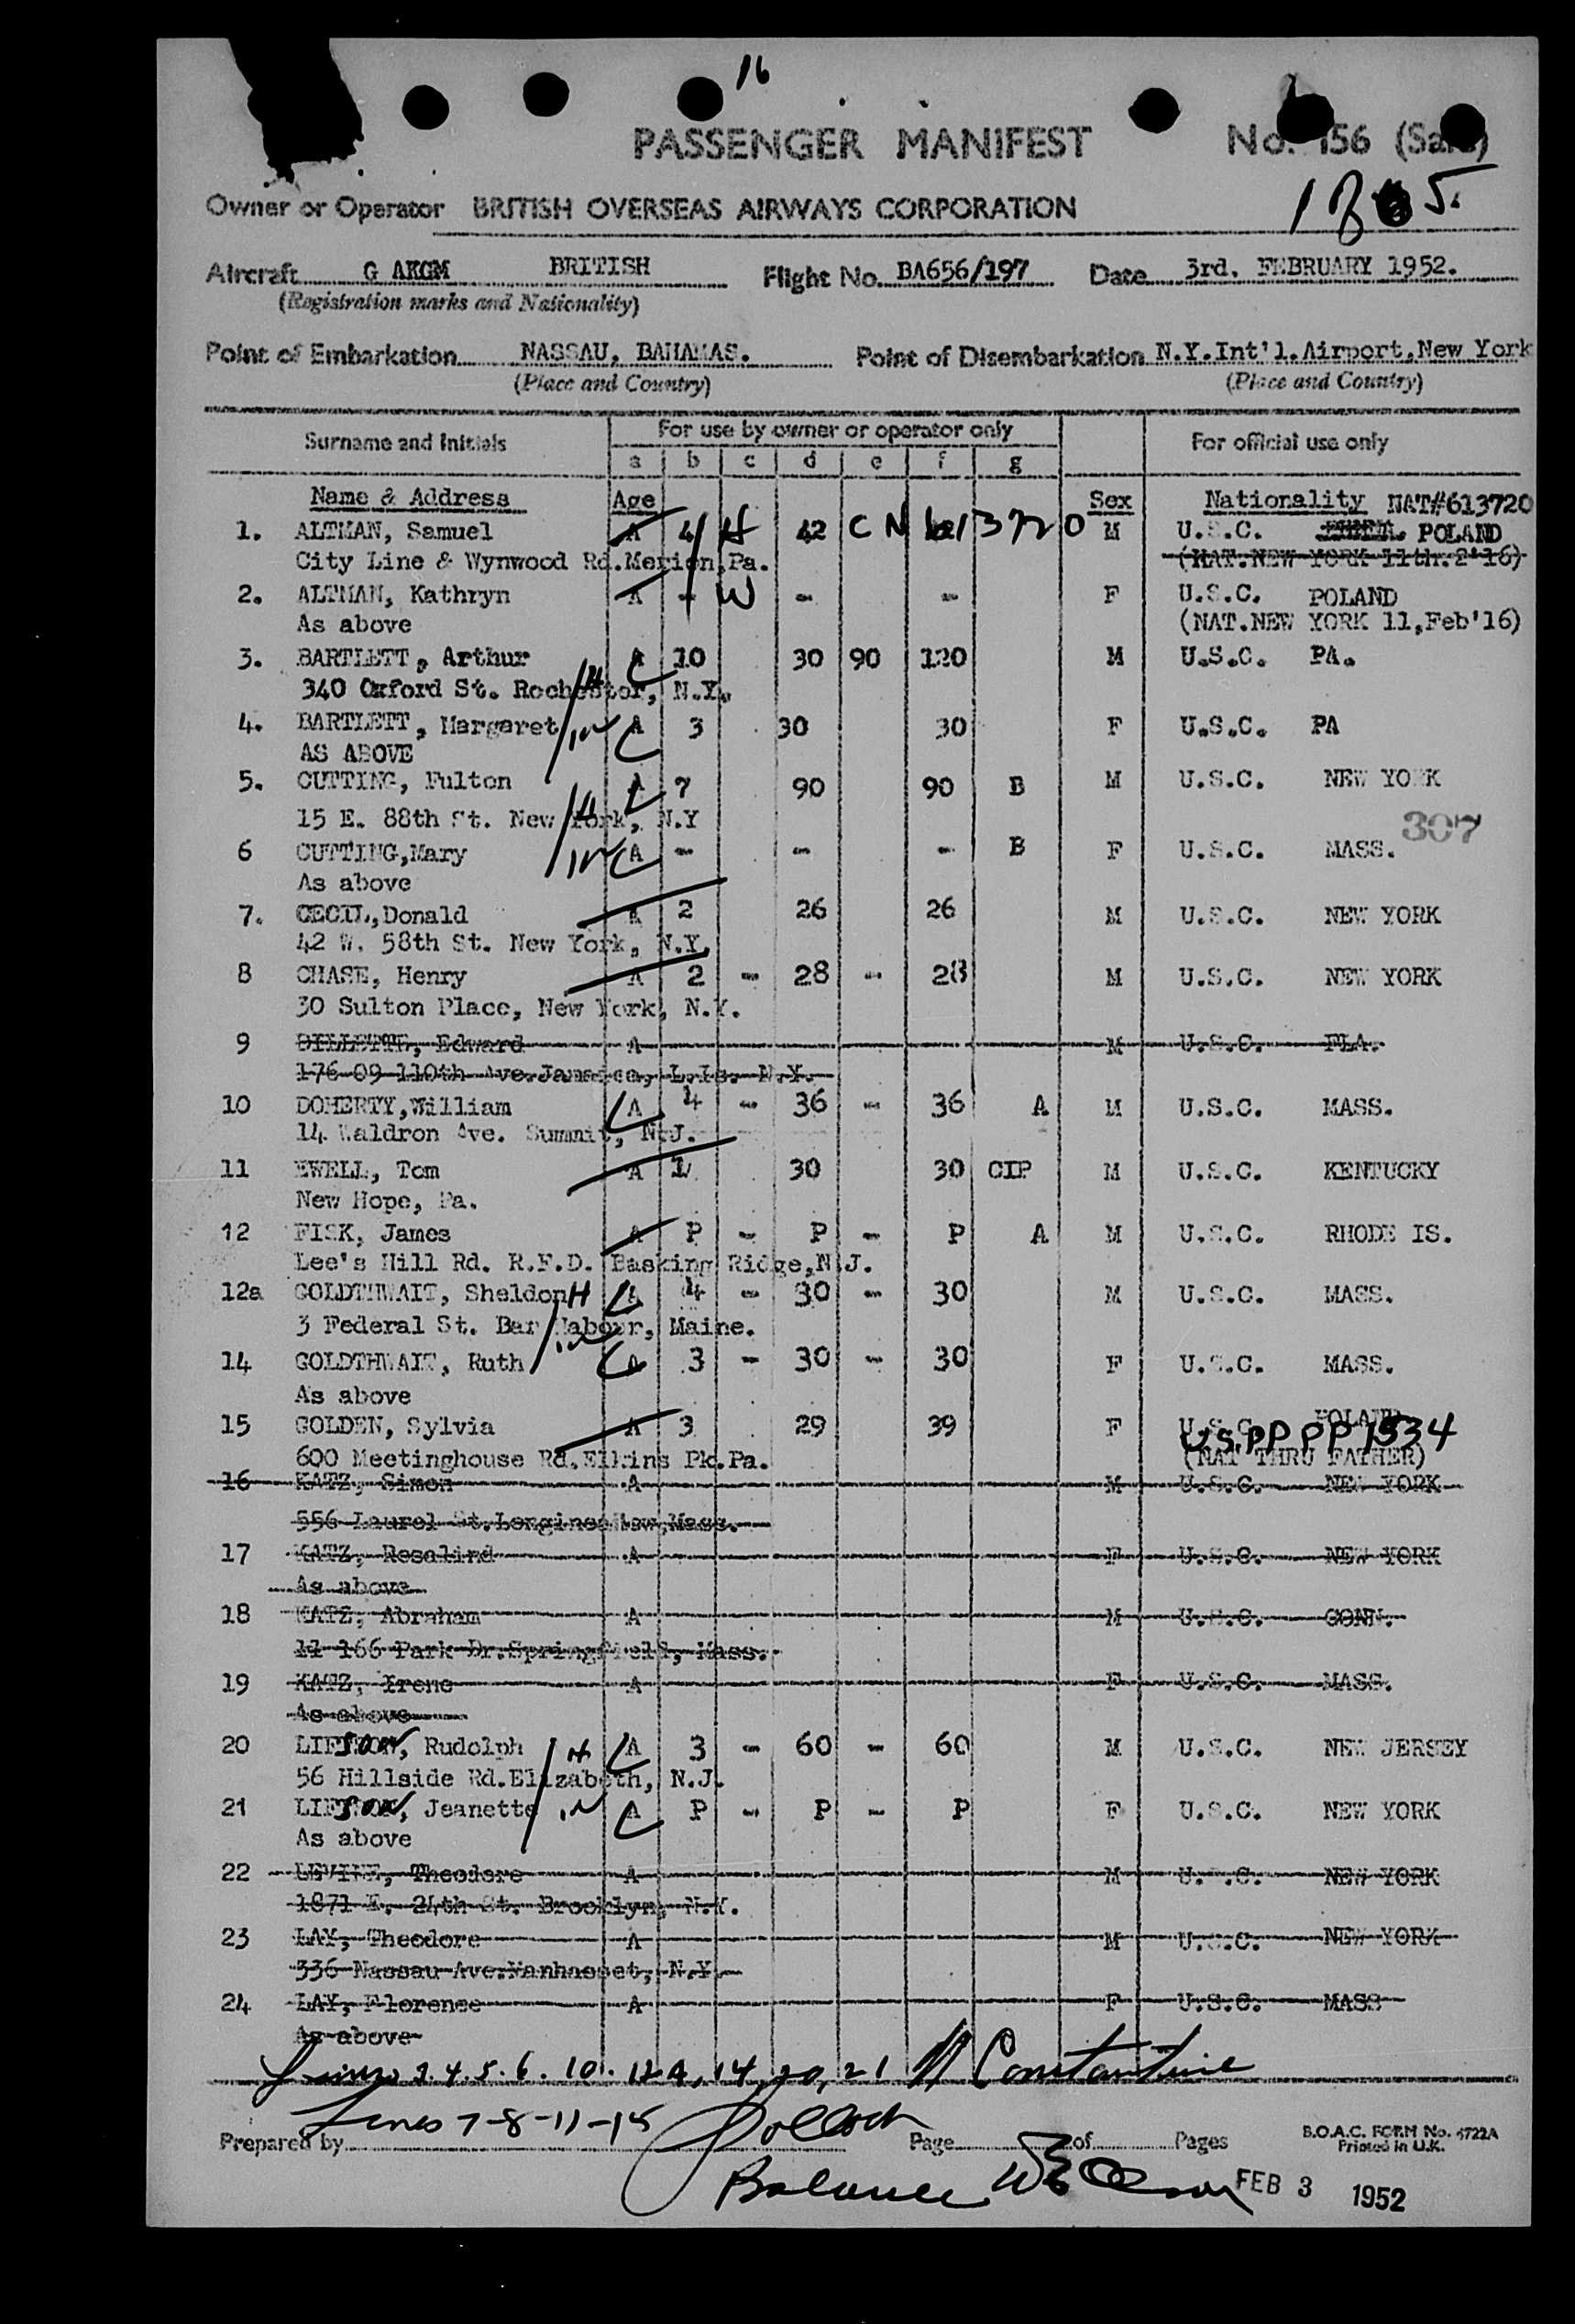 16
PASSENGER MANIFEST No. 156
Owner or Operator BRITISH OVERSEAS AIRWAYS CORPORATION
Aircraft G AKGM BRITISH Flight No. BA656/197 Date 3rd. FEBRUARY 1952.
(Registration marks and Nationality)
Point of Embarkation NASSAU, BAHAMAS. Point of Disembarkation N.Y.Int'l.Airport,New York
(Place and Country) (Place and Country)
Surname and Initials For use by owner or operator only For official use only
a b c d e f g
Name & Address Age Sex Nationality NAT#613720
1. ALTMAN, Samuel A 4 H 42 C N 613720 M U.S.C. POLAND
City Line & Wynwood Rd.Merion,Pa. (NAT.NEW YORK 11th.2'16)
2. ALTMAN, Kathryn A - W - - F U.S.C. POLAND
As above (NAT.NEW YORK 11,Feb'16)
3. BARTLETT, Arthur A 10 30 90 120 M U.S.C. PA.
340 Oxford St. Rochester, N.Y. H
4. BARTLETT, Margaret W A 3 30 30 F U.S.C. PA
AS ABOVE
5. CUTTING, Fulton A 7 90 90 B M U.S.C. NEW YORK
15 E. 88th St. New York, N.Y H
307
6 CUTTING,Mary W A - - - B F U.S.C. MASS.
As above
7. CECIL,Donald A 2 26 26 M U.S.C. NEW YORK
42 W. 58th St. New York, N.Y.
8 CHASE, Henry A 2 - 28 - 28 M U.S.C. NEW YORK
30 Sulton Place, New York, N.Y.
9 Edward A M U.S.C. FLA.
176-09 110th Ave.Jamaica, L.Is. N.Y.
10 DOHERTY,William A 4 - 36 - 36 A M U.S.C. MASS.
14 Waldron Ave. Summit, N.J.
11 EWELL, Tom A 1 30 30 CIP M U.S.C. KENTUCKY
New Hope, Pa.
12 FISK, James A P - P - P A M U.S.C. RHODE IS.
Lee's Hill Rd. R.F.D. Basking Ridge,N.J.
12a GOLDTHWAIT, Sheldon H A 4 - 30 - 30 M U.S.C. MASS.
3 Federal St. Bar Habour, Maine.
14 GOLDTHWAIT, Ruth W A 3 - 30 - 30 F U.S.C. MASS.
As above
15 GOLDEN, Sylvia A 3 29 39 F U.S.C. POLAND
U.S.PP PP 1534
600 Meetinghouse Rd.Elkins Pk.Pa. (NAT THRU FATHER)
16 KATZ, Simon A M U.S.C. NEW YORK
556 Laurel St. Mass.
17 KATZ, Rosalind A F U.S.C. NEW YORK
As above
18 KATZ, Abraham A M U.S.C. CONN.
11 166 Park Dr.Springfield, Mass.
19 KATZ, Irene A F U.S.C. MASS.
As above
20 LIFSON, Rudolph H A 3 - 60 - 60 M U.S.C. NEW JERSEY
56 Hillside Rd.Elizabeth, N.J.
21 LIFSON, Jeanette W A P - P - P F U.S.C. NEW YORK
As above
22 LEVINE, Theodore A M U.S.C. NEW YORK
1871 E. 24th St. Brooklyn, N.Y.
23 LAY, Theodore A M U.S.C. NEW YORK
336 Nassau Ave.Manhasset, N.Y.
24 LAY, Florence A F U.S.C. MASS
As above
Lines 3.4.5.6.10.12A,14,20,21 Constantine
Lines 7-8-11-15 Pollock
Prepared by Page of Pages B.O.A.C. FORM No. 4722A
Printed in U.K.
Balance
FEB 3 1952